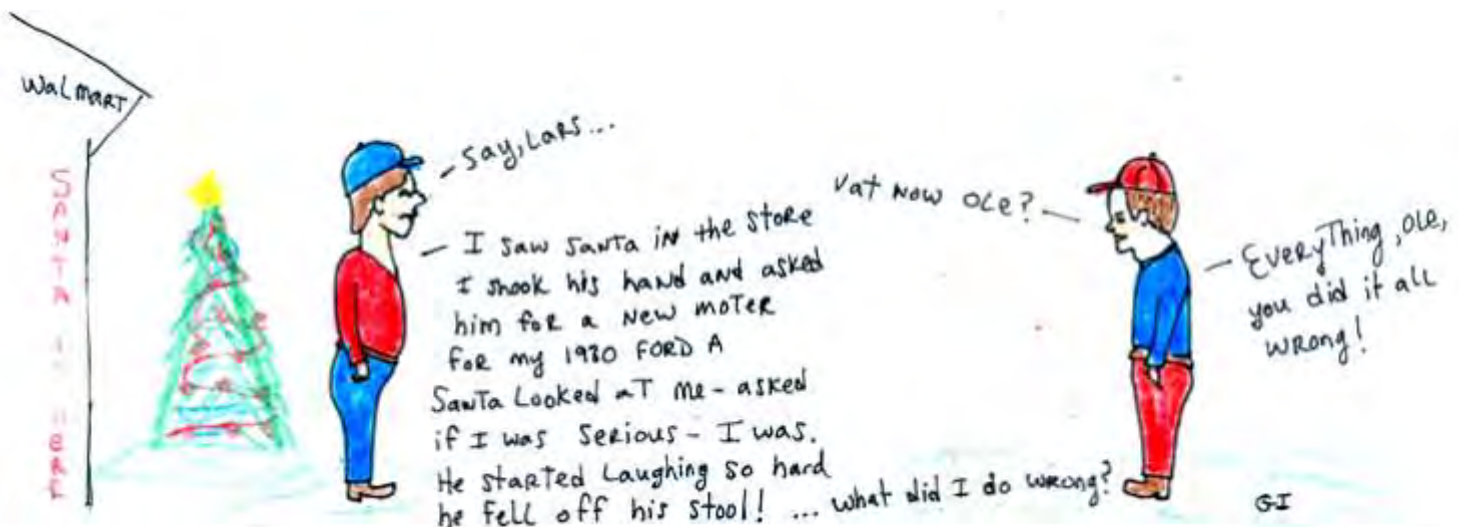 Walmart
SANTA IS HERE
Say, Lars...
Vat Now Ole?
I saw Santa in the store
I shook his hand and asked
him for a new moter
for my 1930 FORD A
Santa Looked at me - asked
if I was Serious - I was.
He started Laughing so hard
he fell off his stool! ... what did I do wrong?
Everything, Ole,
you did it all
wrong!
GI